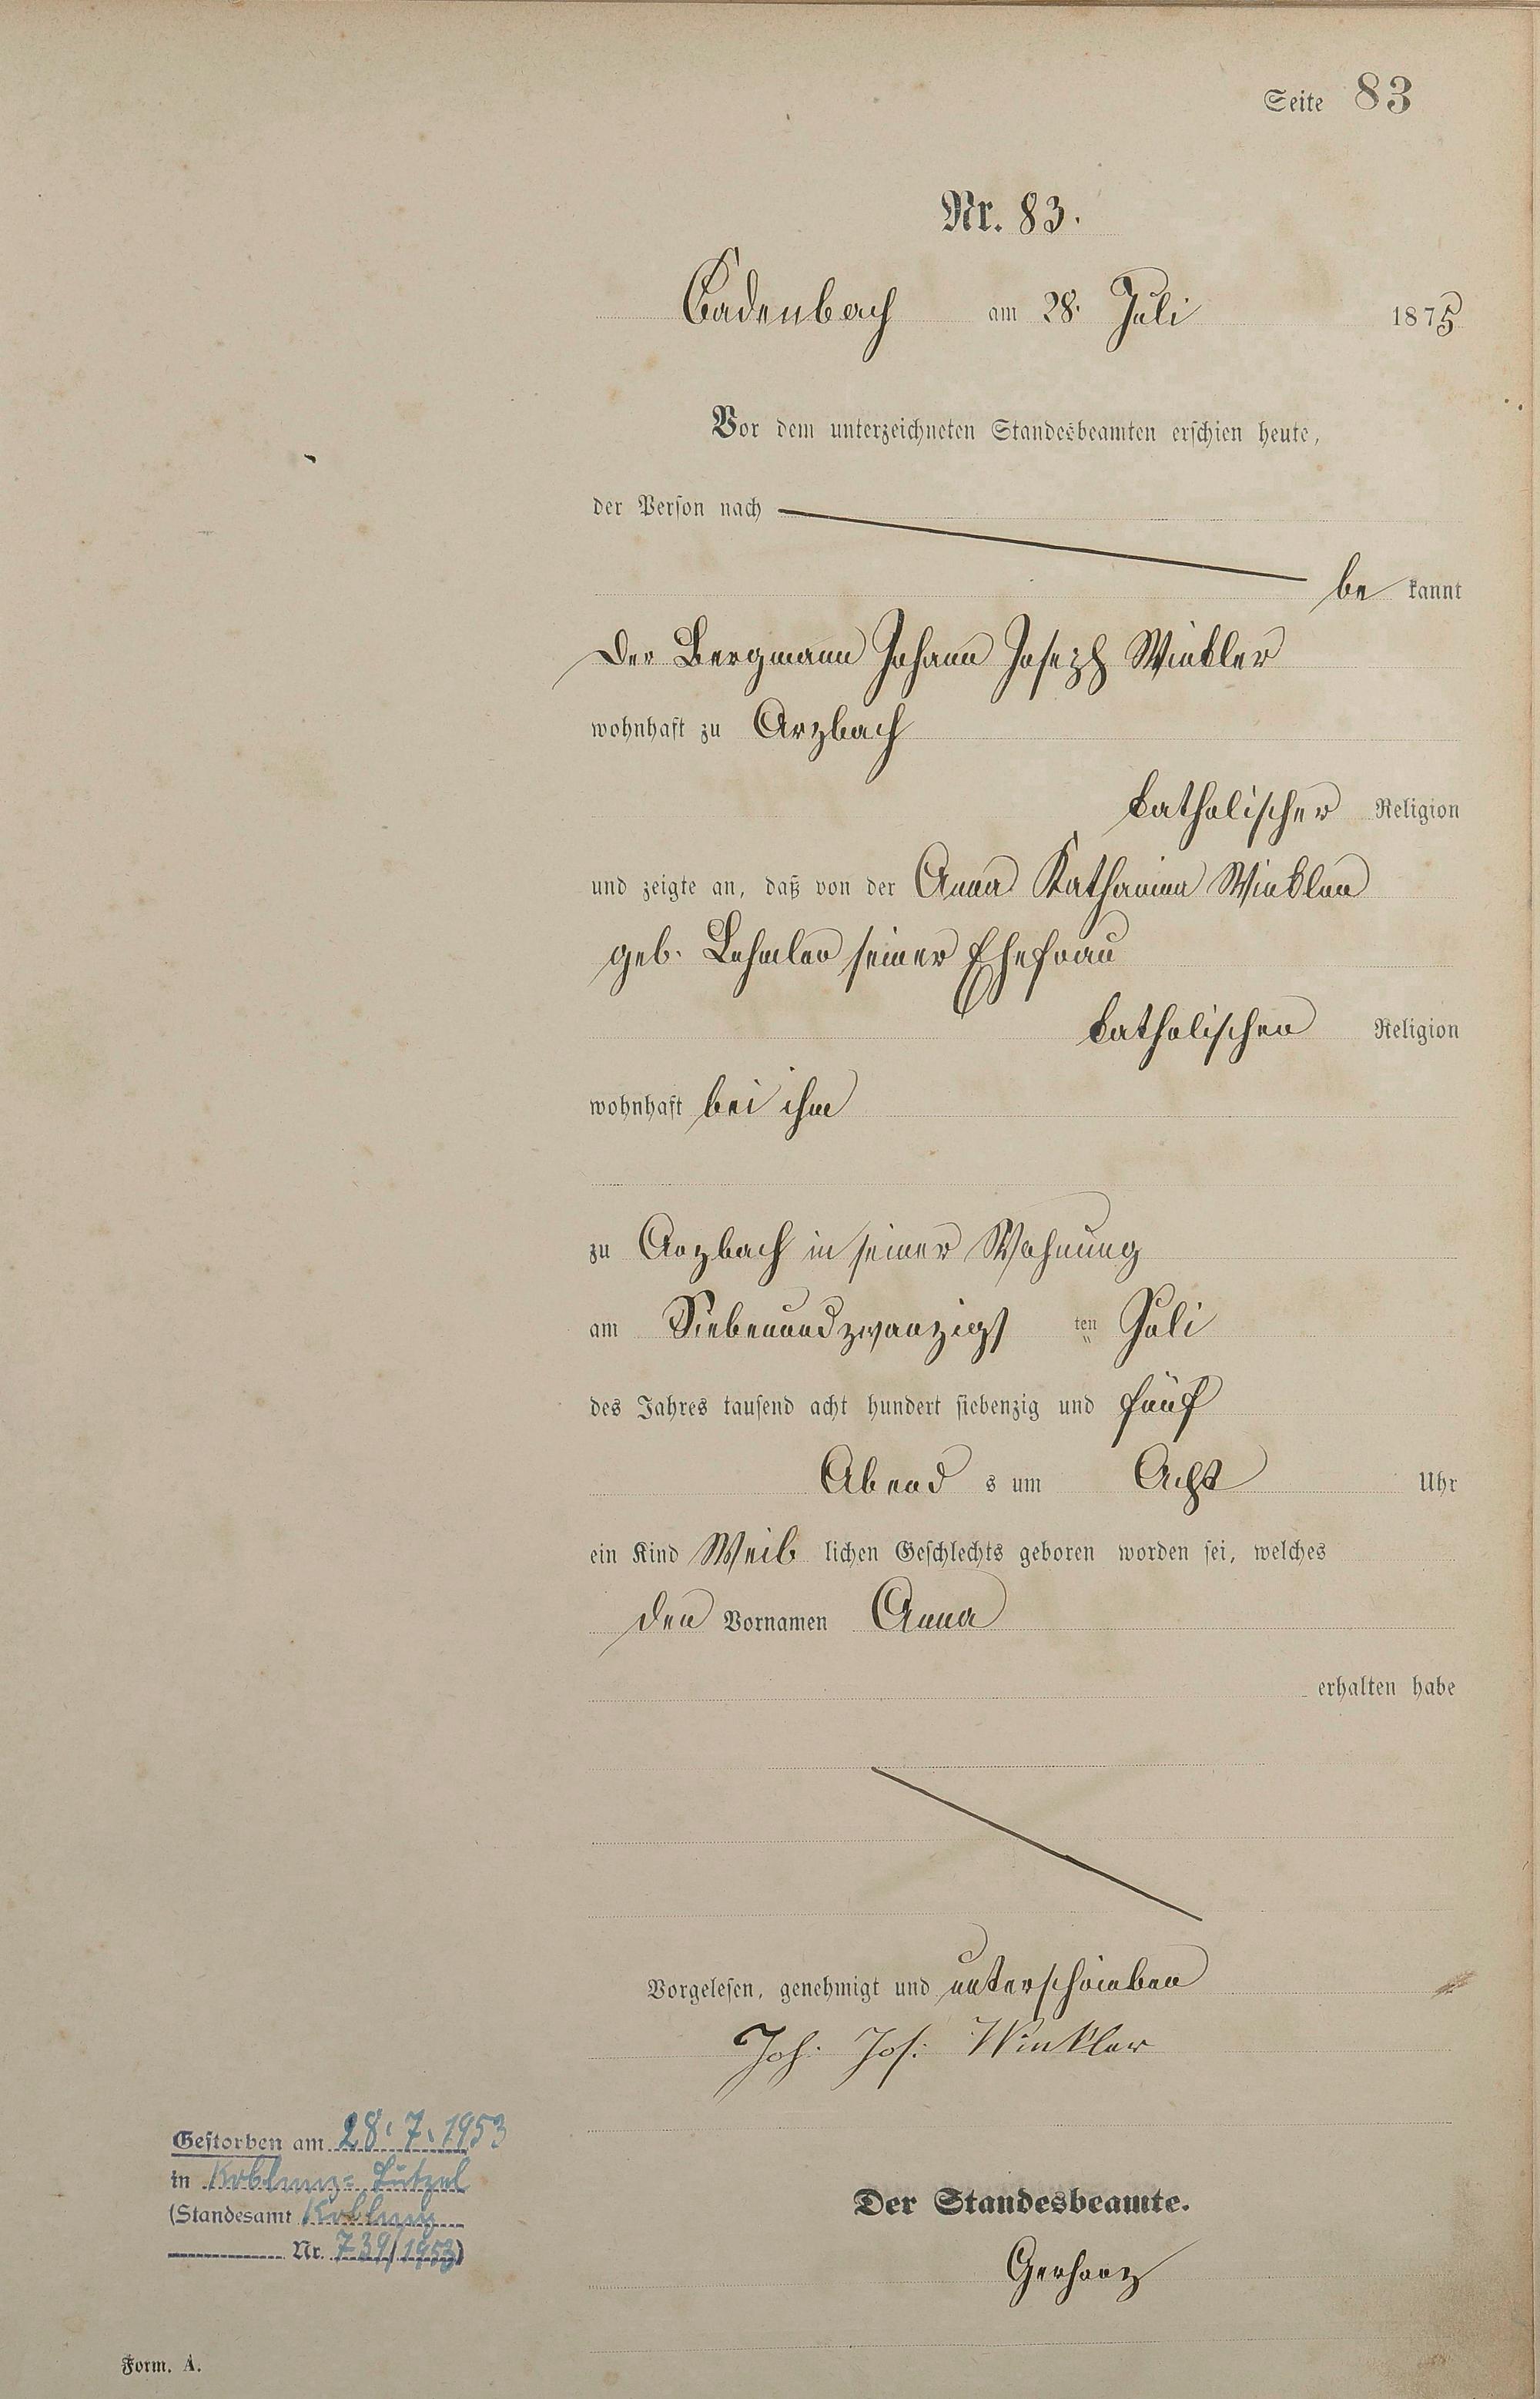 Seite 83
Nr. 83.
Cadenbach am 28. Juli 1875
Vor dem unterzeichneten Standesbeamten erschien heute,
der Person nach
be kannt
Der Bergmann Johann Joseph Winkler
wohnhaft zu Arzbach
katholischer Religion
und zeigte an, daß von der Anna Katharina Winkler
geb. Lehmler seiner Ehefrau
katholischen Religion
wohnhaft bei ihm
zu Arzbach in seiner Wohnung
am Siebenundzwanzigsten Juli
des Jahres tausend acht hundert siebenzig und fünf
Abend s um Acht Uhr
ein Kind Weib lichen Geschlechts geboren worden sei, welches
den Vornamen Anna
erhalten habe
Vorgelesen, genehmigt und unterschrieben
Joh. Jos. Winkler
Gestorben am 28.7.1953
in Koblenz-Lützel
(Standesamt Koblenz
Nr. 739/1953)
Der Standesbeamte.
Gerharz
Form. A.